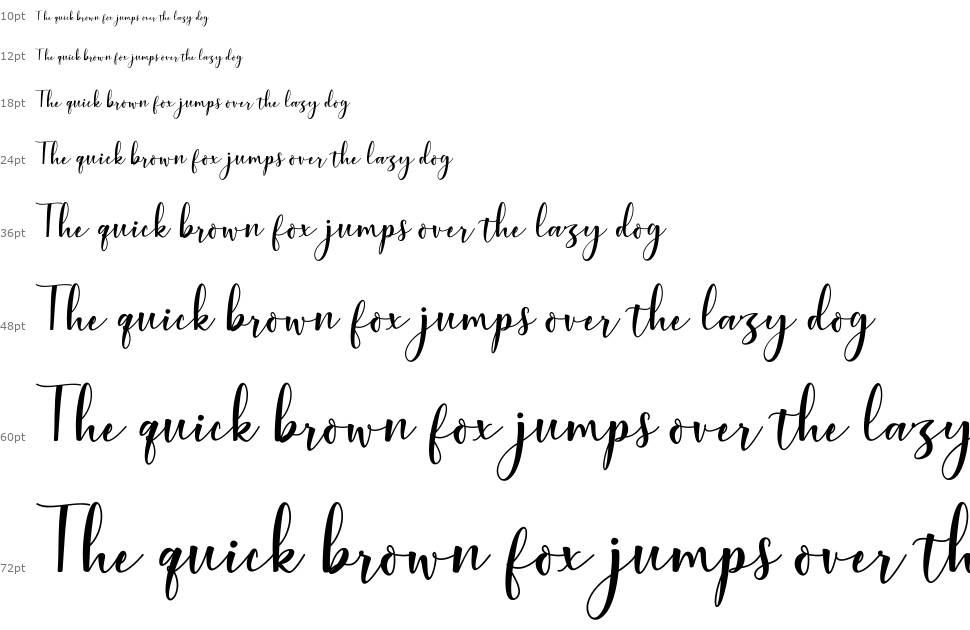 10pt The quick brown fox jumps over the lazy dog
12pt The quick brown fox jumps over the lazy dog
18pt The quick brown fox jumps over the lazy dog
24pt The quick brown fox jumps over the lazy dog
36pt The quick brown fox jumps over the lazy dog
48pt The quick brown fox jumps over the lazy dog
60pt The quick brown fox jumps over the lazy
72pt The quick brown fox jumps over th